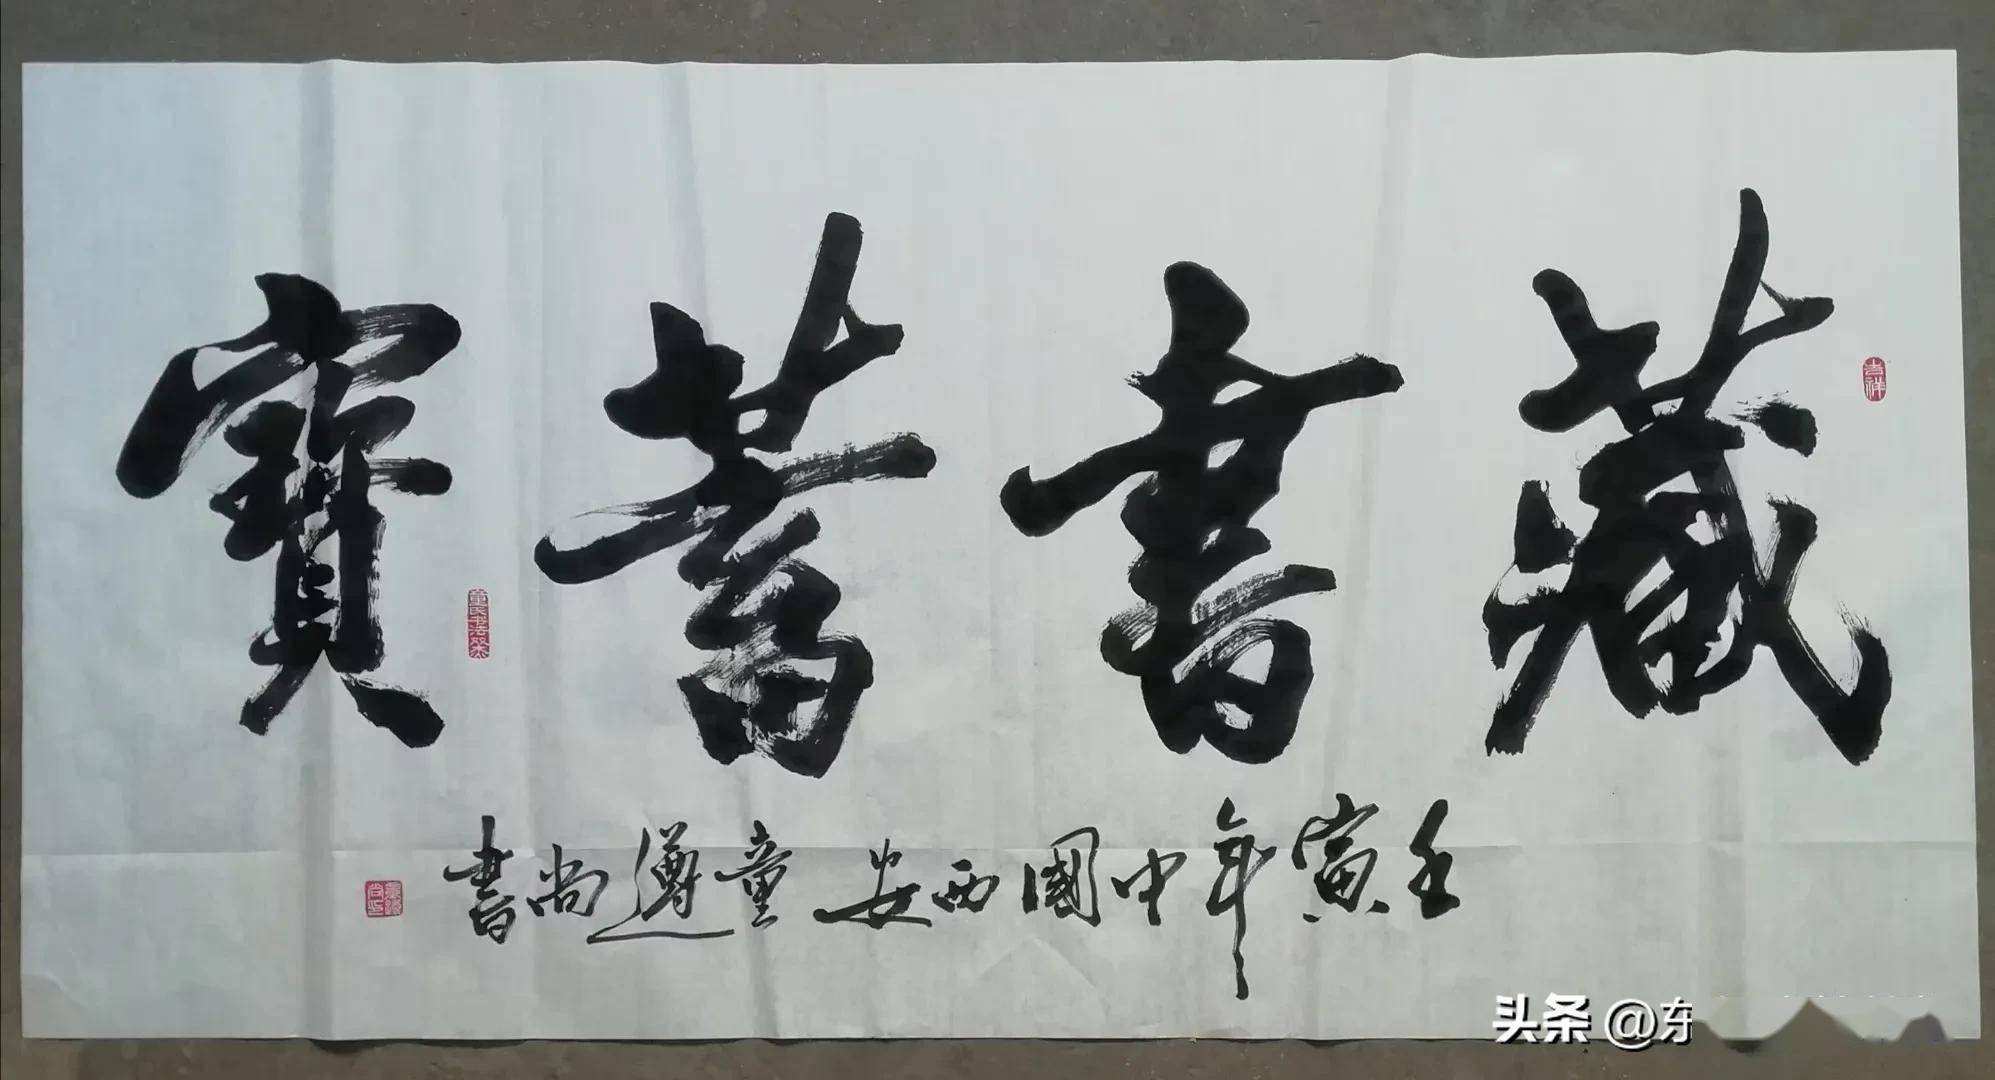 藏書蓄寶
吉祥
壬寅年中國西安童遵尚書
头条 @东